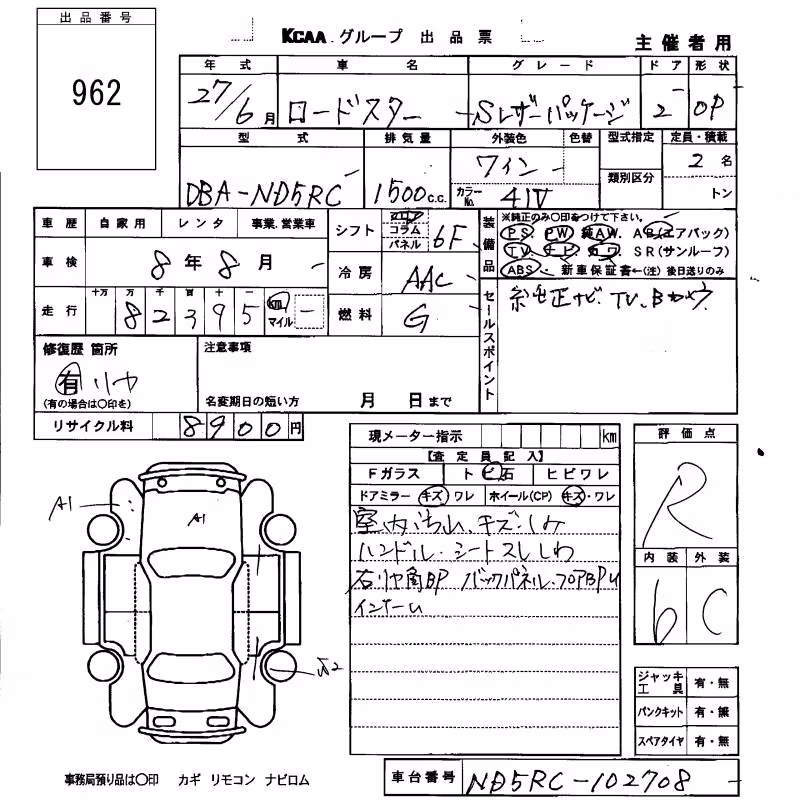 出品番号
962
KCAA グループ 出品票
主催者用
年式 車名 グレード ドア 形状
27/6月 ロードスター Sレザーパッケージ 2 OP
型式 排気量 外装色 色替 型式指定 定員・積載
DBA-ND5RC 1500c.c. ワイン 2名
カラーNo. 41V 類別区分 トン
車歴 自家用 レンタ 事業.営業車
シフト コラム パネル 6F
装備品
※純正のみ〇印をつけて下さい。
PS. PW 純AW. AB(エアバック)
TV ナビ カワ SR(サンルーフ)
ABS. 新車保証書←(注) 後日送りのみ
車検 8年8月
冷房 AAC
走行 十万 万 千 百 十 一
82395 km マイル
燃料 G
セールスポイント
純正ナビ. TV. Bカメラ
修復歴 箇所
有 リヤ
(有の場合は〇印を)
注意事項
名変期日の短い方 月 日まで
リサイクル料 8900円
現メーター指示 km
【査定員記入】
Fガラス トビ石 ヒビワレ
ドアミラー キズ ワレ ホイール(CP) キズ・ワレ
室内汚れ、キズ・
ハンドル・シートスレしわ
右リヤ角BP バックパネル・フロアBP
評価点
R
内装 外装
6 C
A1
A1
ジャッキ工具 有・無
パンクキット 有・無
スペアタイヤ 有・無
事務局預り品は〇印 カギ リモコン ナビロム
車台番号 ND5RC-102708